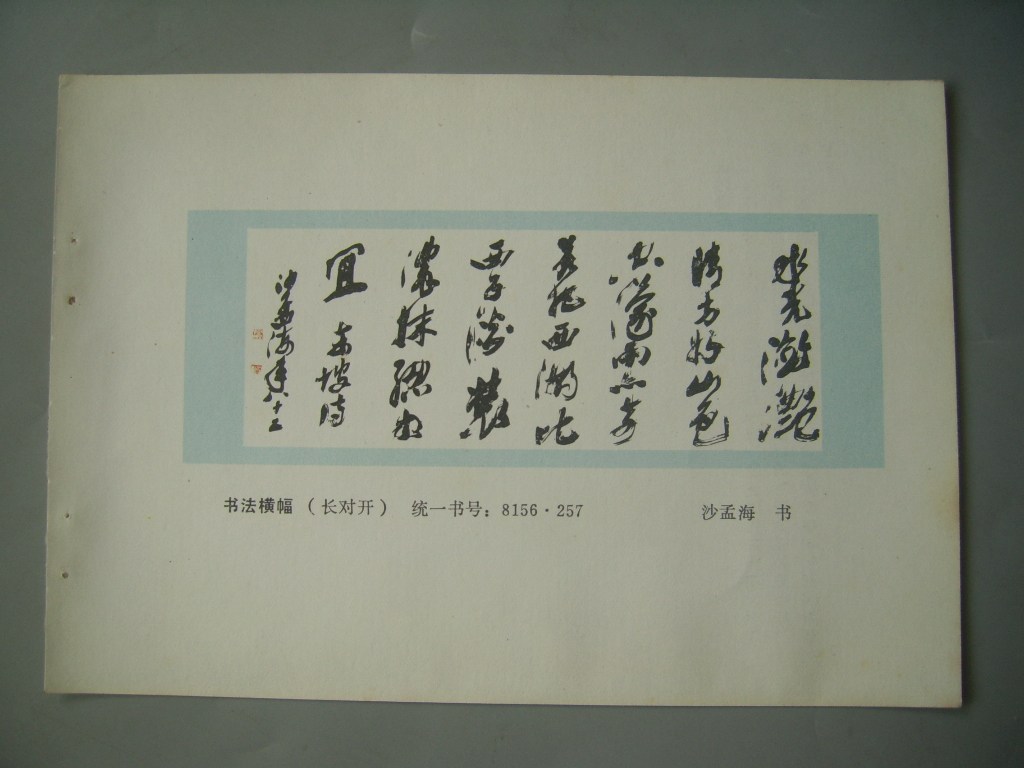 水光瀲灩
晴方好山色
空濛雨亦奇
若把西湖比
西子澹裝
濃抹總相
宜 東坡詩
沙孟海年八十三
书法横幅（长对开） 统一书号：8156·257 沙孟海 书